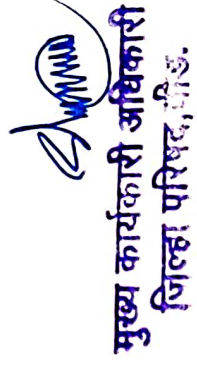 मुख्य कार्यकारी अधिकारी
जिल्हा परिषद,